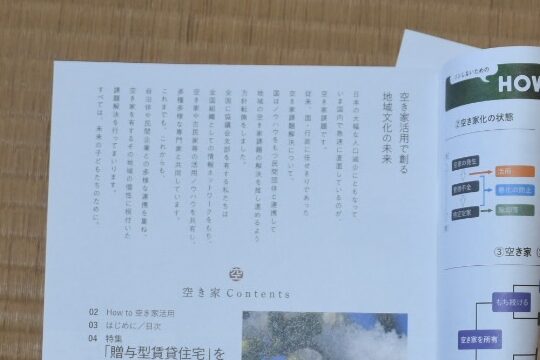 空き家活用で創る
地域文化の未来
日本の大幅な人口減少にともなって
いま国内で急速に直面しているのが、
空き家課題です。
従来、国・行政に任せきりであった
空き家課題解決について、
国はノウハウをもつ民間団体と連携して
地域の空き家課題の解決を推し進めるよう
方針転換をしました。
全国に協議会支部を有する私たちは
全国組織としての情報ネットワークをもち、
空き家や古民家等の活用ノウハウを共有し、
多種多様な専門家と共同しています。
これまでも、これからも、
自治体や民間企業との多様な連携を重ね、
空き家を有するその地域の個性に根付いた
課題解決を行ってまいります。
すべては、未来の子どもたちのために。
空
空き家 Contents
02 How to 空き家活用
03 はじめに／目次
04 特集
「贈与型賃貸住宅」を
HOW
②空き家化の状態
活用
悪化の防止
③空き家
もち続ける
空き家を所有